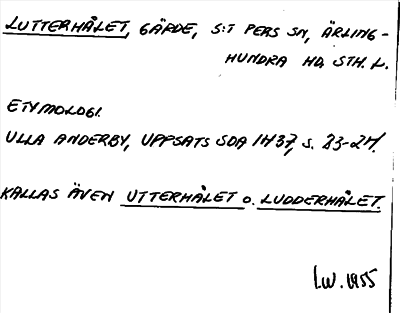 LUTTERHÅLET, GÄRDE, S:T PERS SN, ÄRLING-
HUNDRA HD, STH. L.
ETYMOLOGI.
ULLA ANDERBY, UPPSATS SOA 1437, S. 23-24.
KALLAS ÄVEN UTTERHÅLET O. LUDDERHÅLET.
LW. 1955